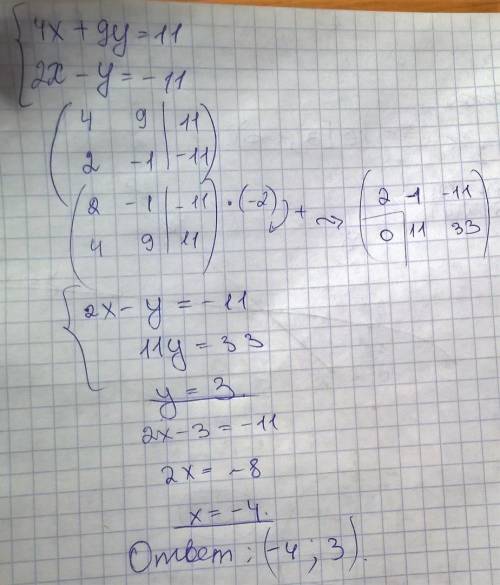 4x + 9y = 11
2x - y = -11
4 9 | 11
2 -1 | -11
2 -1 | -11 · (-2) + ⇝ 2 -1 -11
4 9 | 11 0 11 33
2x - y = -11
11y = 33
y = 3.
2x - 3 = -11
2x = -8
x = -4.
Ответ: (-4; 3).